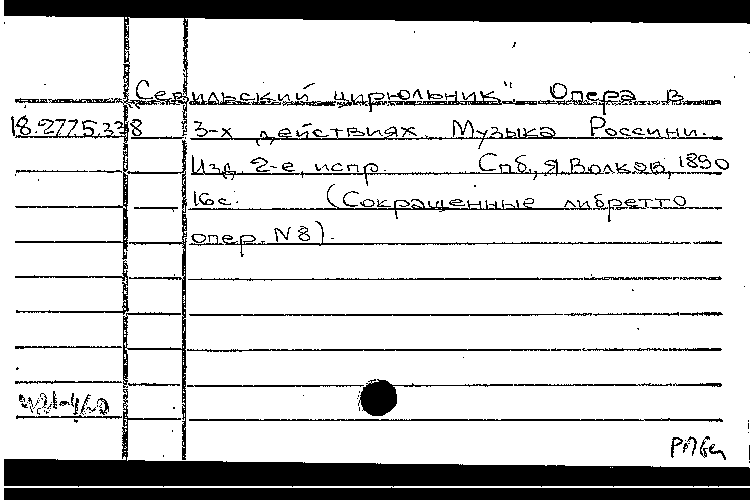 Севильский цирюльник". Опера в
18.2775.338 3-х действиях. Музыка Россини.
Изд. 2-е, испр. Спб., Я. Волков, 1890
16с. (Сокращенные либретто
опер. N8).